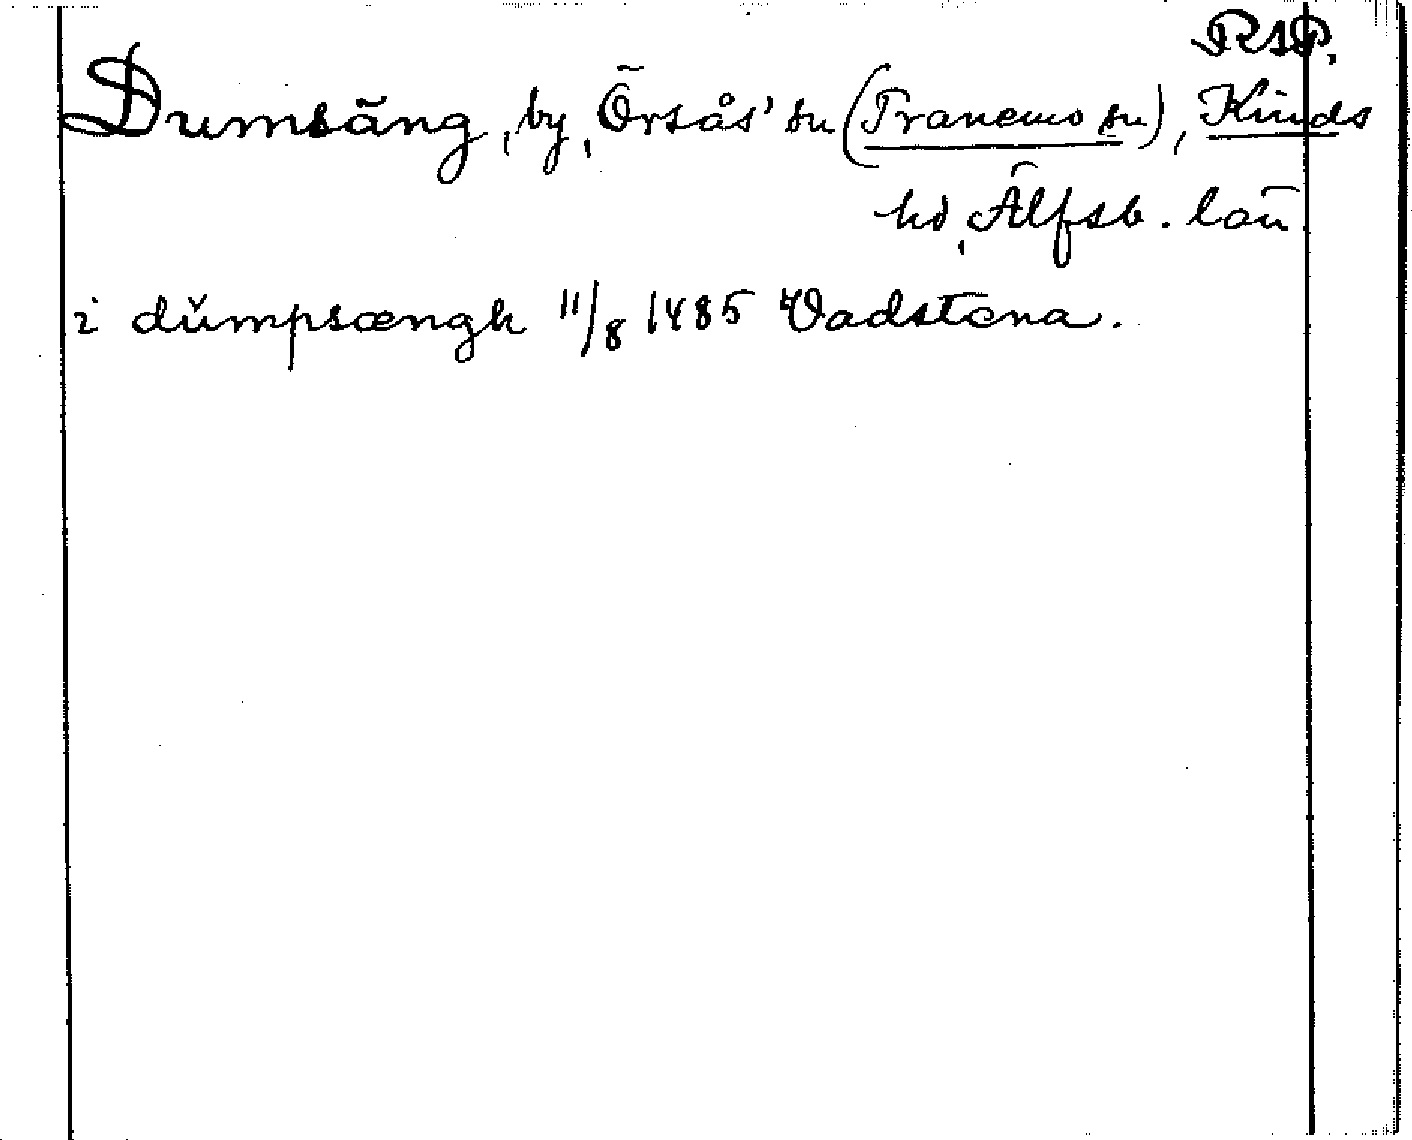 RAP.
Dumsäng, by, Örsås' sn (Tranemo sn), Kinds
hd, Älfsb. län
i dŭmpsængh 11/8 1485 Vadstena.